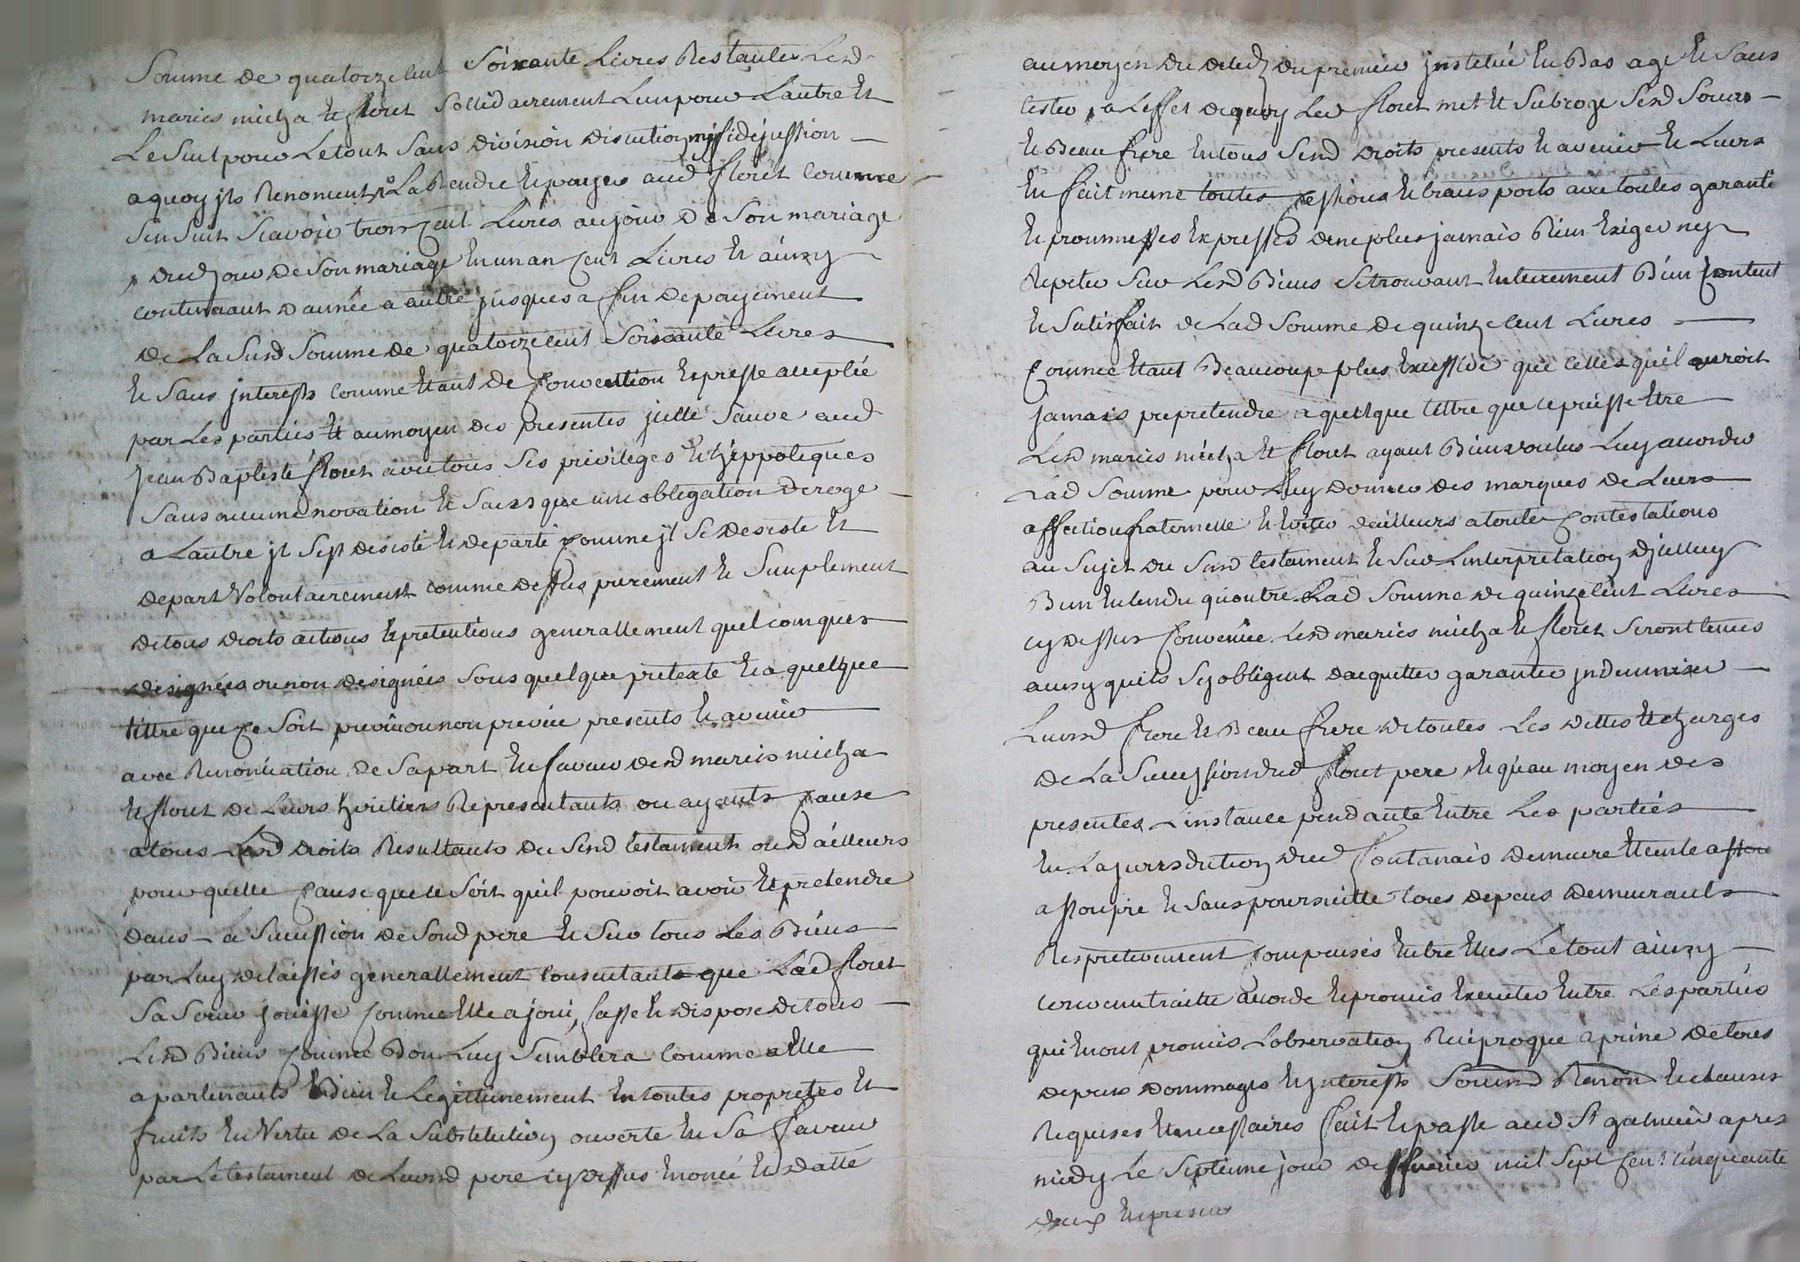 Somme de quatorze cent soixante Livres Restantes Lesd
maries micha et floret sollidairement Lun pour Lautre et
Le seul pour Le tout sans division discution ny fidejussion
a quoy ils Renoncent La Rendre et payer aud floret comme
sen suit scavoir trois cent Livres au jour de son mariage
dud jour de son mariage en un an cent Livres et ainsy
continuant dannée a autre jusques a fin de payement
de La susd somme de quatorze cent soixante Livres
et sans interests comme etant de convention expresse acceptée
par Les parties et au moyen des presentes icelle sauve aud
jean Baptiste floret avec tous ses privileges et hippoteques
sans aucune novation et sans que une obligation deroge
a Lautre il sest desisté et departi comme il se desiste et
depart volontairement comme dessus purement et simplement
de tous droits actions et pretentions generallement quelconques
designées ou non designées sous quelque pretexte et a quelque
tittre que ce soit prevu ou non prevue presents et avenir
avec Renonciation de sa part en faveur desd maries micha
et floret de Leurs heritiers Representants ou ayants cause
a tous Lesd droits Resultants du susd testament ou dailleurs
pour quelle cause que ce soit quil pouvoit avoir et pretendre
dans La succession de sond pere et sur tous Les Biens
par Luy delaissés generallement consentant que Lad floret
sa soeur jouisse comme elle a joui, fasse et dispose de tous
Lesd Biens comme Bon Luy semblera comme a elle
apartenants Bien et Legittimement en toutes propretes et
fruits en vertu de La substitution ouverte en sa faveur
par Le testament de Leurd pere cy dessus enoncé et datte
au moyen du deced du premier institué en Bas age et sans
tester, a Leffet de quoy Led floret met et subroge sesd soeur
et Beau frere en tous sesd droits presents et avenir et Leurs
en fait meme toutes cessions et transports avec toutes garantie
et proumesses expresses de ne plus jamais Rien exiger ny
Repeter sur Lesd Biens se trouvant entierement Bien content
et satisfait de Lad somme de quinze cent Livres
comme etant Beaucoup plus excessive que celles quil auroit
jamais pre pretendre a quelque tittre que ce puisse etre
Lesd maries micha et floret ayant Bien voulus Luy accorder
Lad somme pour Luy donner des marques de Leurs
affection fraternelle et eviter dailleurs a toutes contestations
au sujet du susd testament et sur Linterpretation dicelluy
Bien entendu quoutre Lad somme de quinze cent Livres
cy dessus convenüe Lesd maries micha et floret seront tenus
ainsy quils sy obligent dacquitter garantir indemniser
Leursd frere et Beau frere de toutes Les dettes et charges
de La succession dud floret pere et quau moyen des
presentes Linstance pendante entre Les parties
en La jurisdiction dud fontanais demeure eteinte
assoupie et sans poursuitte tous depens demeurants
Respectivement compensés entre elles Le tout ainsy
convenu traitté accordé et promis executer entre Les parties
qui en ont promis Lobservation Reciproque a peine de tous
depens dommages et interests sousmd Renon et clauses
Requises et necessaires fait et passé aud st galmier apres
midy Le septieme jour de fevrier mil sept cent cinquante
deux en presence